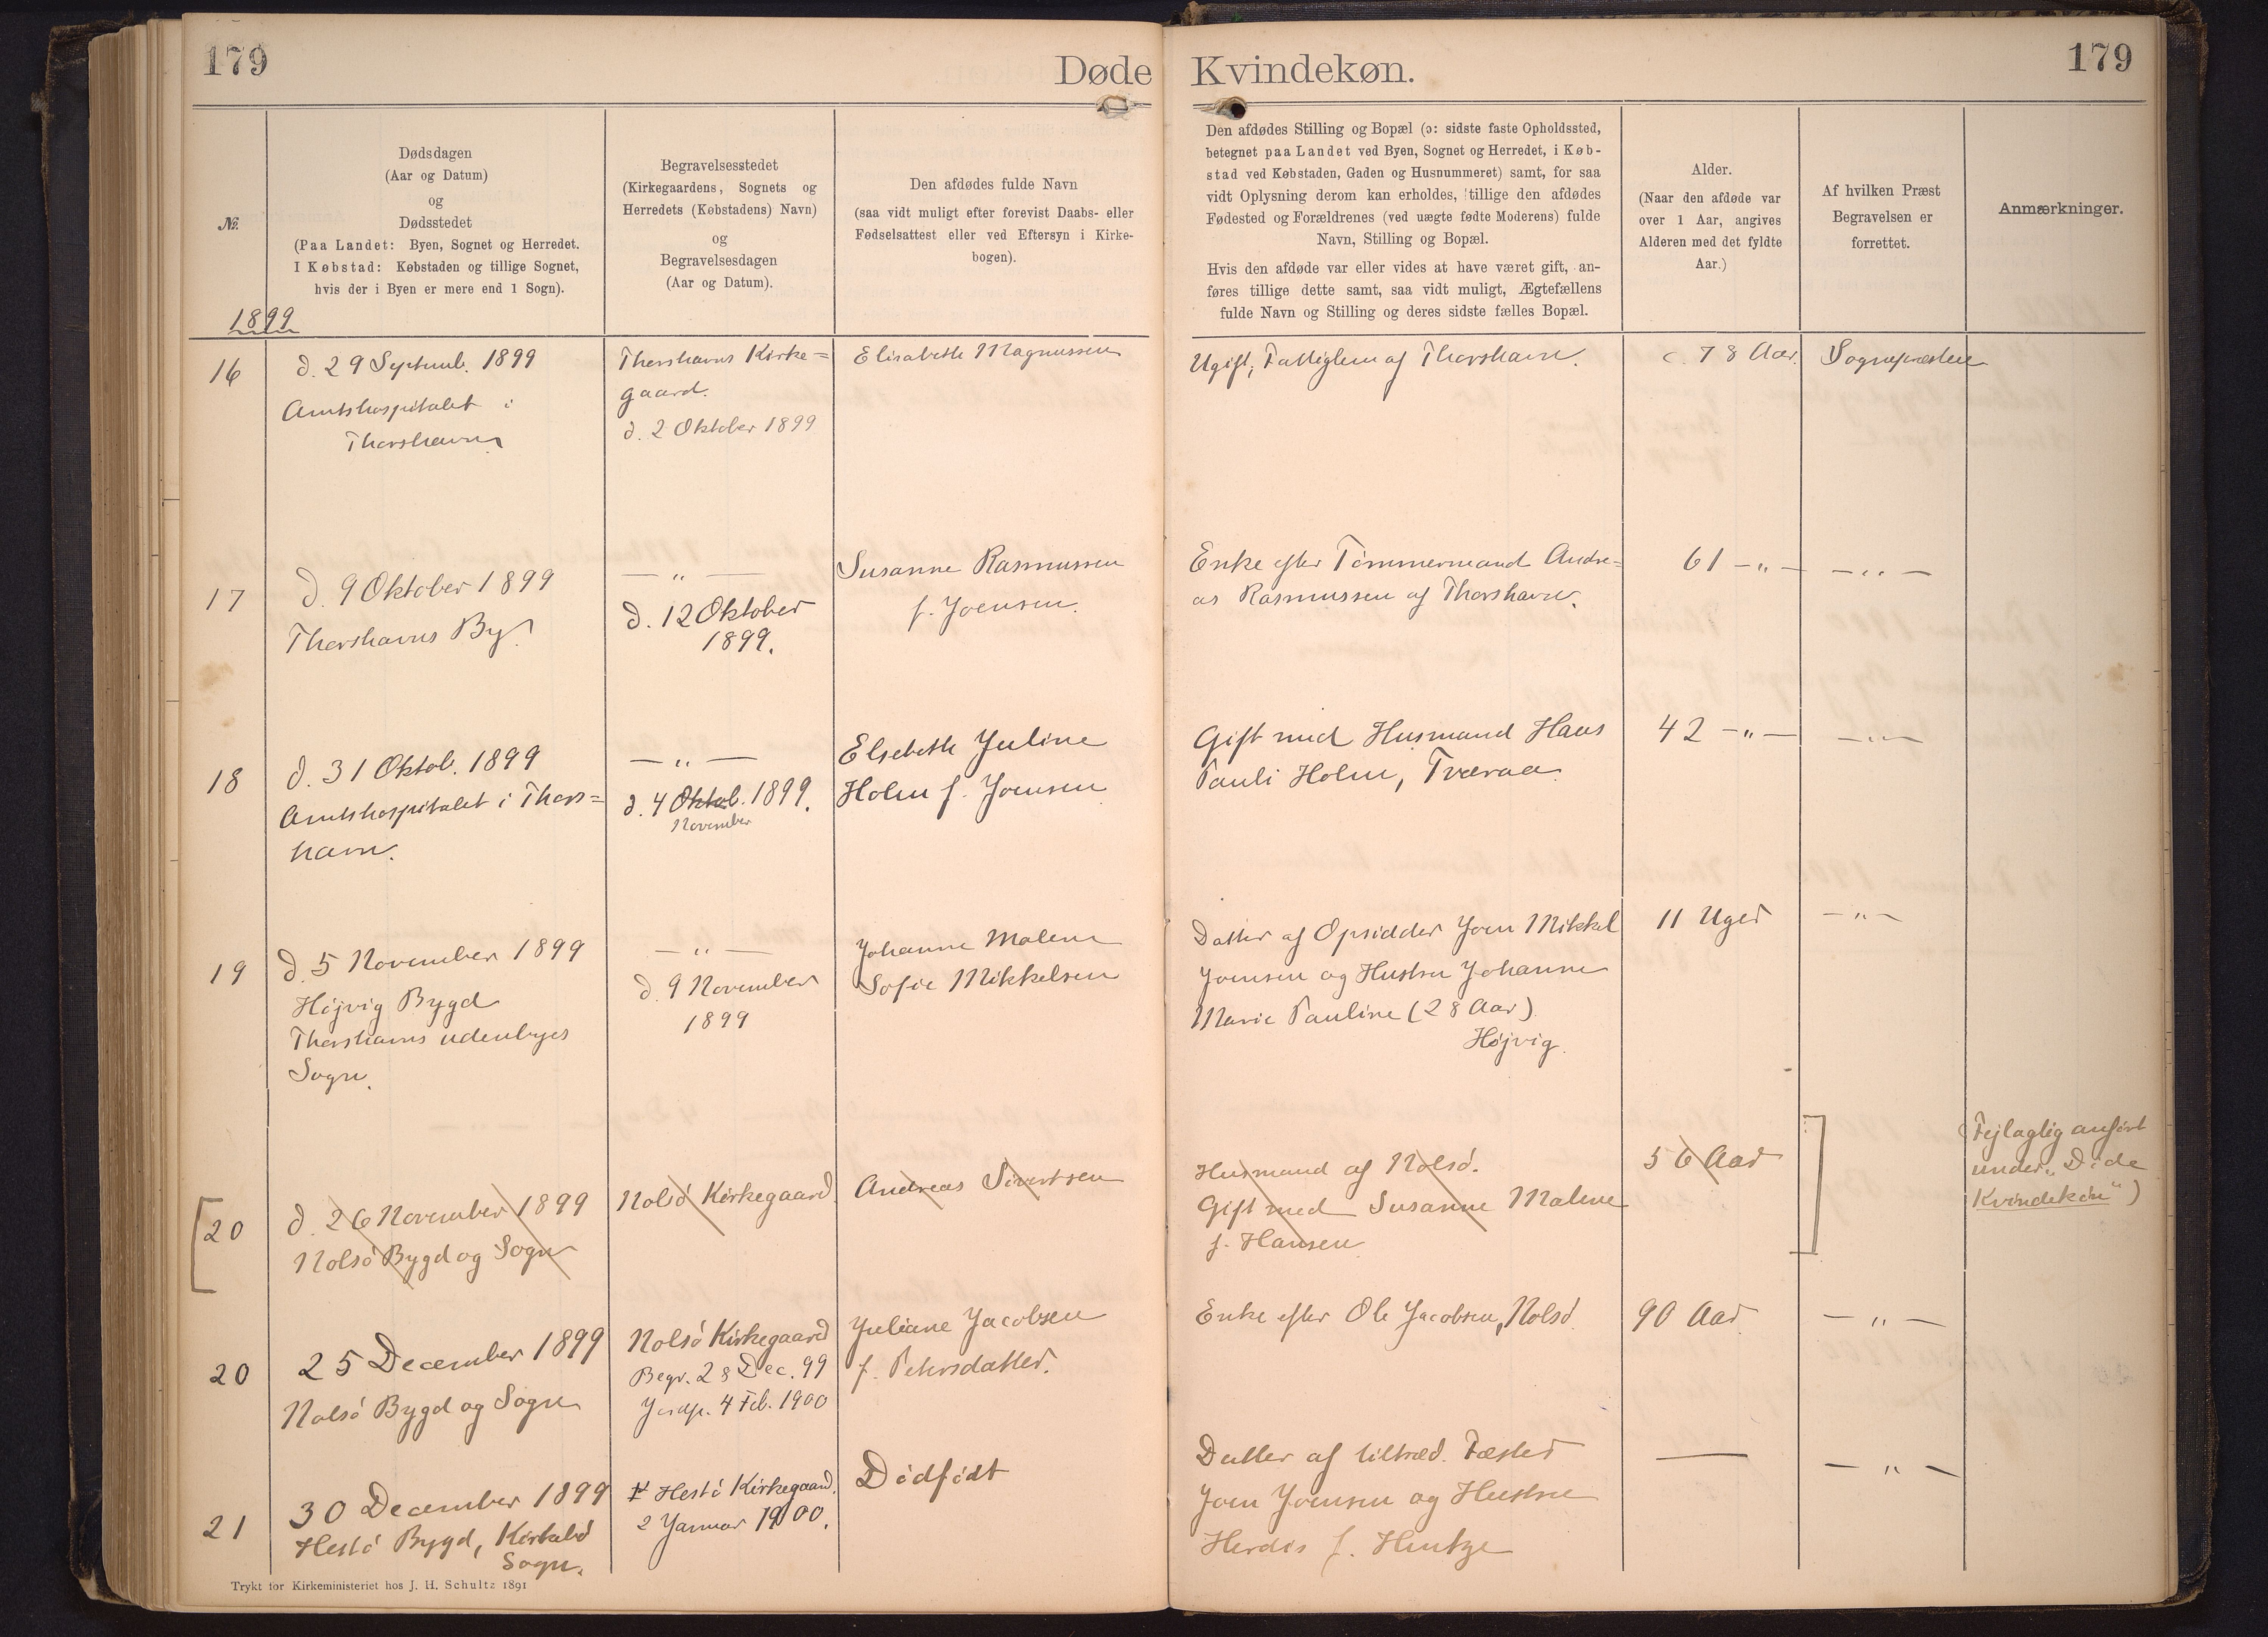 179
Døde Kvindekøn.
179
№.
Dødsdagen
(Aar og Datum)
og
Dødsstedet
(Paa Landet: Byen, Sognet og Herredet.
I Købstad: Købstaden og tillige Sognet,
hvis der i Byen er mere end 1 Sogn).
Begravelsesstedet
(Kirkegaardens, Sognets og
Herredets (Købstadens) Navn)
og
Begravelsesdagen
(Aar og Datum).
Den afdødes fulde Navn
(saa vidt muligt efter forevist Daabs- eller
Fødselsattest eller ved Eftersyn i Kirke-
bogen).
Den afdødes Stilling og Bopæl (ɔ: sidste faste Opholdssted,
betegnet paa Landet ved Byen, Sognet og Herredet, i Køb-
stad ved Købstaden, Gaden og Husnummeret) samt, for saa
vidt Oplysning derom kan erholdes, tillige den afdødes
Fødested og Forældrenes (ved uægte fødte Moderens) fulde
Navn, Stilling og Bopæl.
Hvis den afdøde var eller vides at have været gift, an-
føres tillige dette samt, saa vidt muligt, Ægtefællens
fulde Navn og Stilling og deres sidste fælles Bopæl.
Alder.
(Naar den afdøde var
over 1 Aar, angives
Alderen med det fyldte
Aar.)
Af hvilken Præst
Begravelsen er
forrettet.
Anmærkninger.
1899
16
d. 29 Septemb. 1899
Amtshospitalet i
Thorshavn
Thorshavns Kirke=
gaard.
d. 2 Oktober 1899
Elisabeth Magnussen
Ugift, Fattiglem af Thorshavn.
c. 78 Aar.
Sognepræsten
17
d. 9 Oktober 1899
Thorshavns By.
— „ —
d. 12 Oktober
1899.
Susanne Rasmussen
f. Joensen.
Enke efter Tømmermand Andre=
as Rasmussen af Thorshavn.
61 — „ —
— „ —
18
d. 31 Oktob. 1899
Amtshospitalet i Thors=
havn.
— „ —
d. 4 Oktob. 1899.
November
Elsebeth Juline
Holm f. Joensen
Gift med Husmand Hans
Pauli Holm, Tværaa.
42 — „ —
— „ —
19
d. 5 November 1899
Højvig Bygd
Thorshavns udenbyes
Sogn.
— „ —
d. 9 November
1899
Johanne Malene
Sofie Mikkelsen
Datter af Opsidder Joen Mikkel
Joensen og Hustru Johanne
Marie Pauline (28 Aar).
Højvig.
11 Uger
— „ —
[20
d. 26 November 1899
Nolsø Bygd og Sogn
Nolsø Kirkegaard
Andreas Sivertsen
Husmand af Nolsø.
Gift med Susanne Malene
f. Hansen
56 Aar
]
(Fejlagtig anført
under „Døde
Kvindekøn“)
20
25 December 1899
Nolsø Bygd og Sogn
Nolsø Kirkegaard
Begr. 28 Dec. 99
Jordp. 4 Feb. 1900
Juliane Jacobsen
f. Petersdatter.
Enke efter Ole Jacobsen, Nolsø.
90 Aar
— „ —
21
30 December 1899
Hestø Bygd, Kirkebø
Sogn.
Hestø Kirkegaard.
2 Januar 1900.
Dødfødt
Datter af tiltræd. Fæster
Joen Joensen og Hustru
Herdis f. Hentze
—
— „ —
Trykt for Kirkeministeriet hos J. H. Schultz 1891